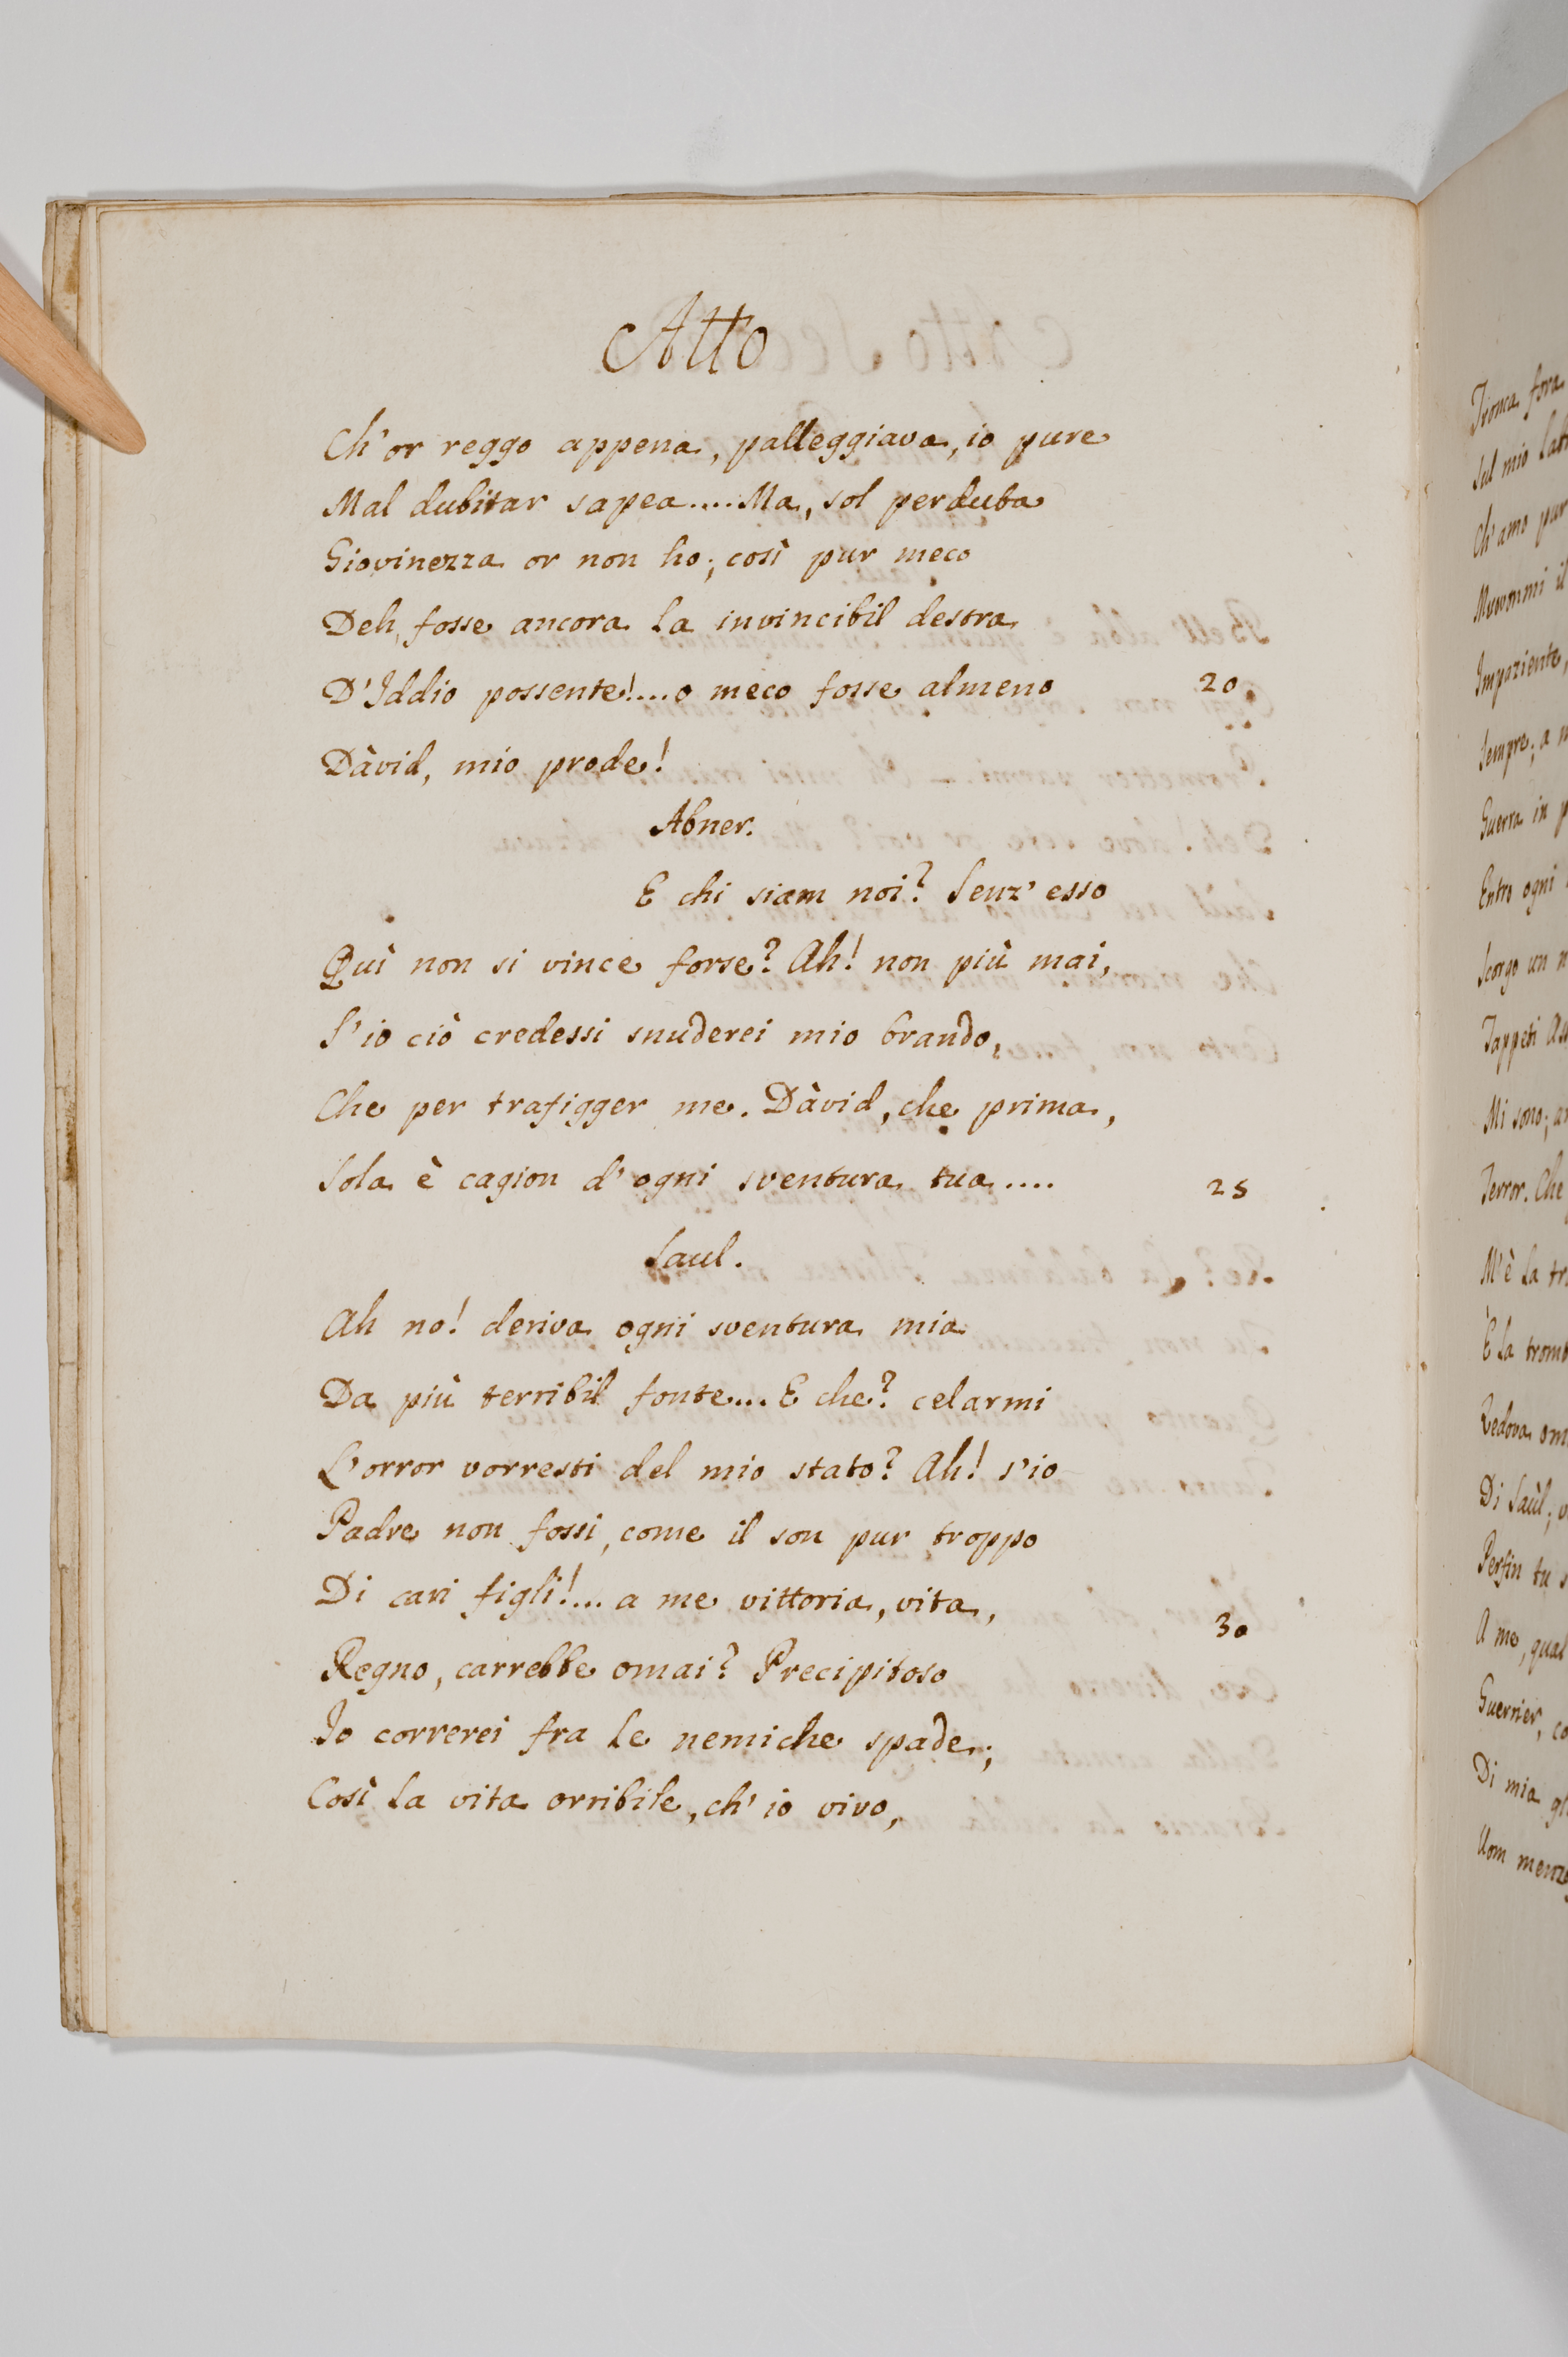 Atto
Ch'or reggo appena, palleggiava, io pure
Mal dubitar sapea.... Ma, sol perduta
Giovinezza or non ho; così pur meco
Deh, fosse ancora la invincibil destra
D'Iddio possente!... o meco fosse almeno 20
Dàvid, mio prode!
Abner.
E chi siam noi? Senz' esso
Quì non si vince forse? Ah! non più mai,
S'io ciò credessi snuderei mio brando,
Che per trafigger me. Dàvid, che prima,
Sola è cagion d'ogni sventura tua.... 25
Saul.
Ah no! deriva ogni sventura mia
Da più terribil fonte... E che? celarmi
L'orror vorresti del mio stato? Ah! s'io
Padre non fossi, come il son pur troppo
Di cari figli!... a me vittoria, vita, 30
Regno, carrebbe omai? Precipitoso
Io correrei fra le nemiche spade;
Così la vita orribile, ch' io vivo,
Tronca fora
Sul mio
Ch'amo pur
Impaziente,
Sempre; a
Guerra in
Entro ogni
Scorgo un
Tappeti
Mi sono;
Terror. Che
M'è la
È la
Vedova
Di Saùl;
Perfin tu
A me, qual
Guerrier,
Di mia
Uom